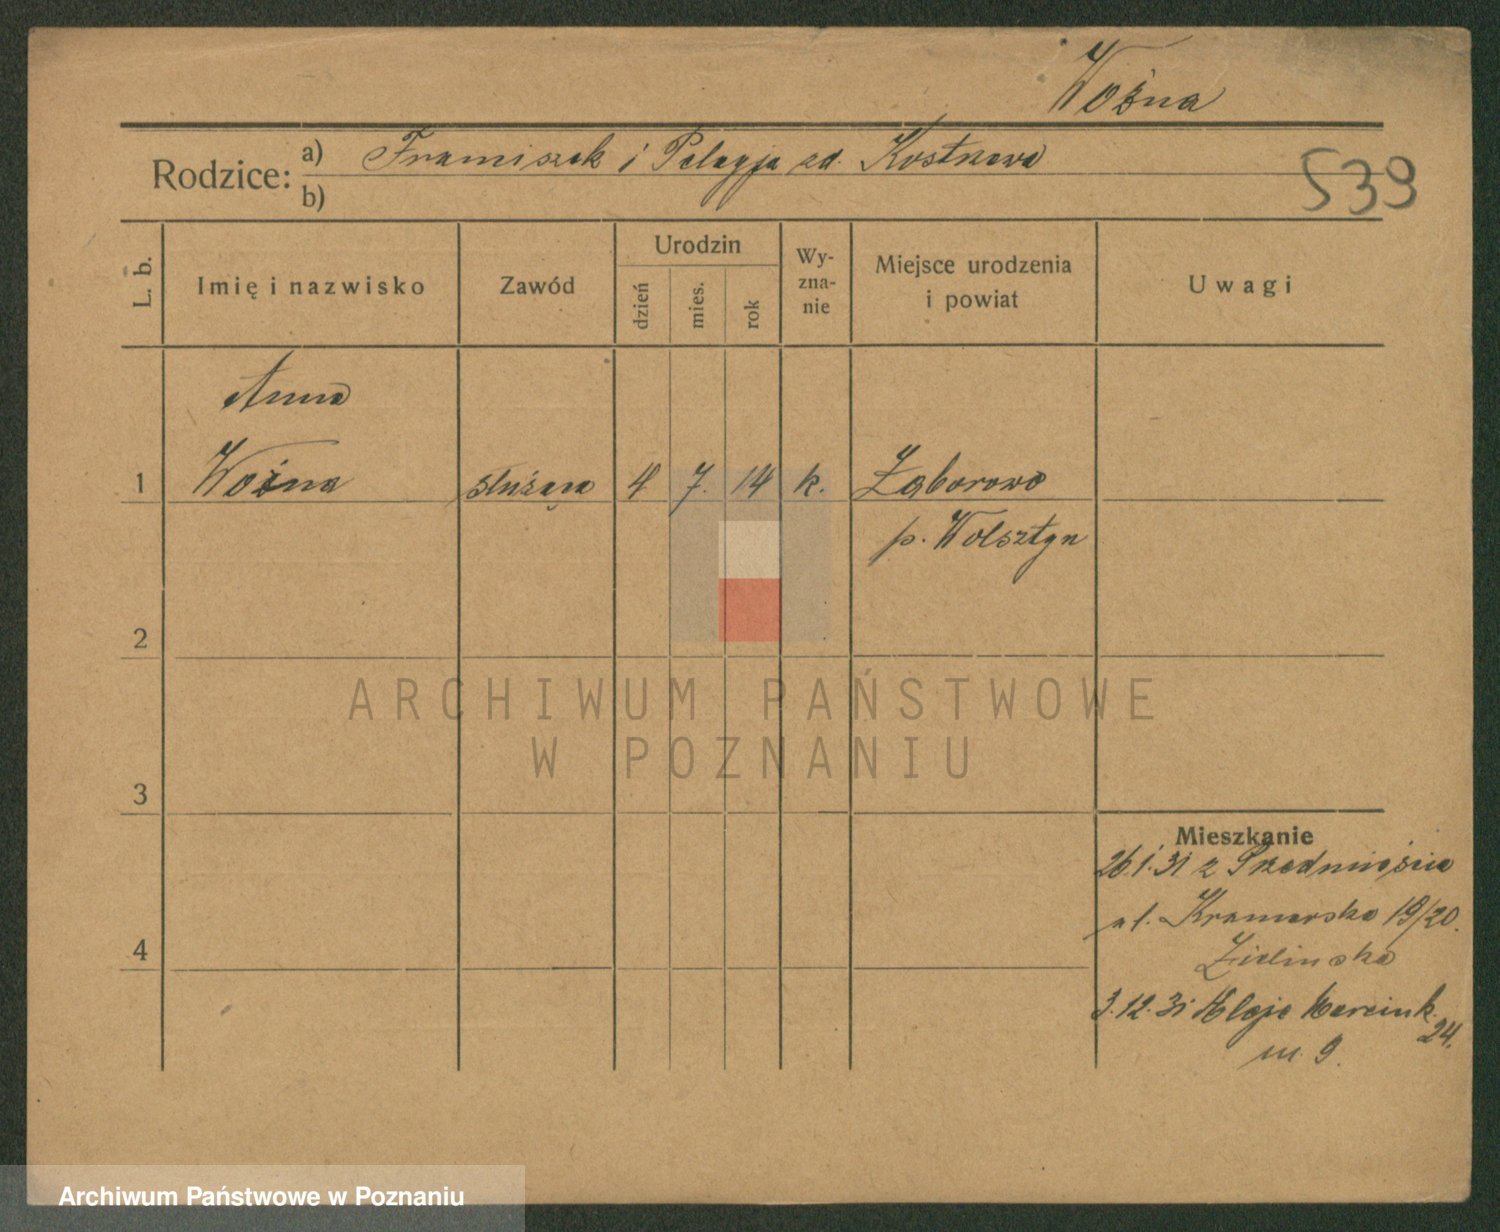 Woźna
Rodzice:
a) Franciszek i Pelagja zd.
b)
539
L. b.
Imię i nazwisko
Zawód
Urodzin
dzień
mies.
rok
Wy-
zna-
nie
Miejsce urodzenia
i powiat
Uwagi
Anna
1 Woźna służąca 4 7. 14 k. Zaborowo
p. Wolsztyn
2
3
4
ARCHIWUM PAŃSTWOWE
W POZNANIU
Mieszkanie
26.1.31 z Przedmieścia
ul. Kramarska 19/20.
Zielinska
3.12.31 Aleje Marcink.
24.
m. 9.
Archiwum Państwowe w Poznaniu